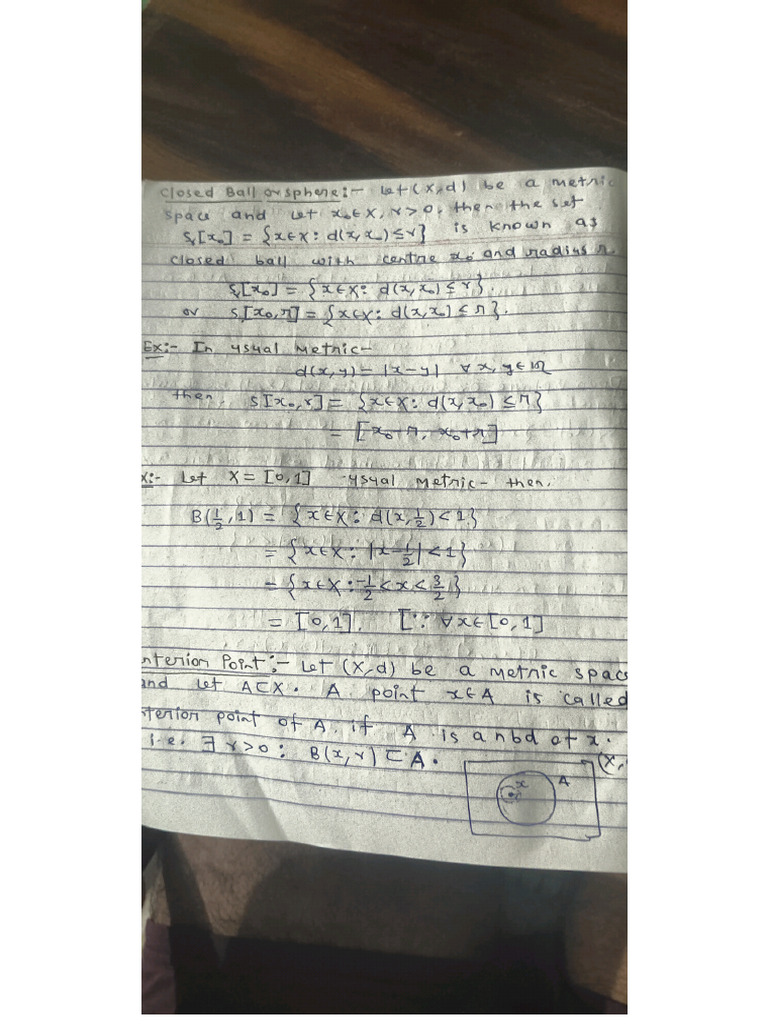 Closed Ball or sphere:- Let (X,d) be a metric
space and let x₀∈X, r>0, then the set
Sᵣ[x₀] = {x∈X: d(x,x₀)≤r} is known as
closed ball with centre x₀ and radius r.
Sᵣ[x₀] = {x∈X: d(x,x₀)≤r}.
or S[x₀,r] = {x∈X: d(x,x₀)≤r}.
Ex:- In usual metric-
d(x,y) = |x-y| ∀ x,y∈IR
then, S[x₀,r] = {x∈X: d(x,x₀)≤r}
= [x₀-r, x₀+r]
x:- Let X=[0,1] usual metric- then,
B(1/2,1) = {x∈X: d(x,1/2)<1}
= {x∈X: |x-1/2|<1}
= {x∈X: -1/2<x<3/2}
= [0,1]. [∵ ∀x∈[0,1]
nterior Point:- Let (X,d) be a metric space
and let A⊂X. A point x∈A is called
nterior point of A, if A is a nbd of x.
i.e. ∃ r>0: B(x,r)⊂A.
(X,
x A